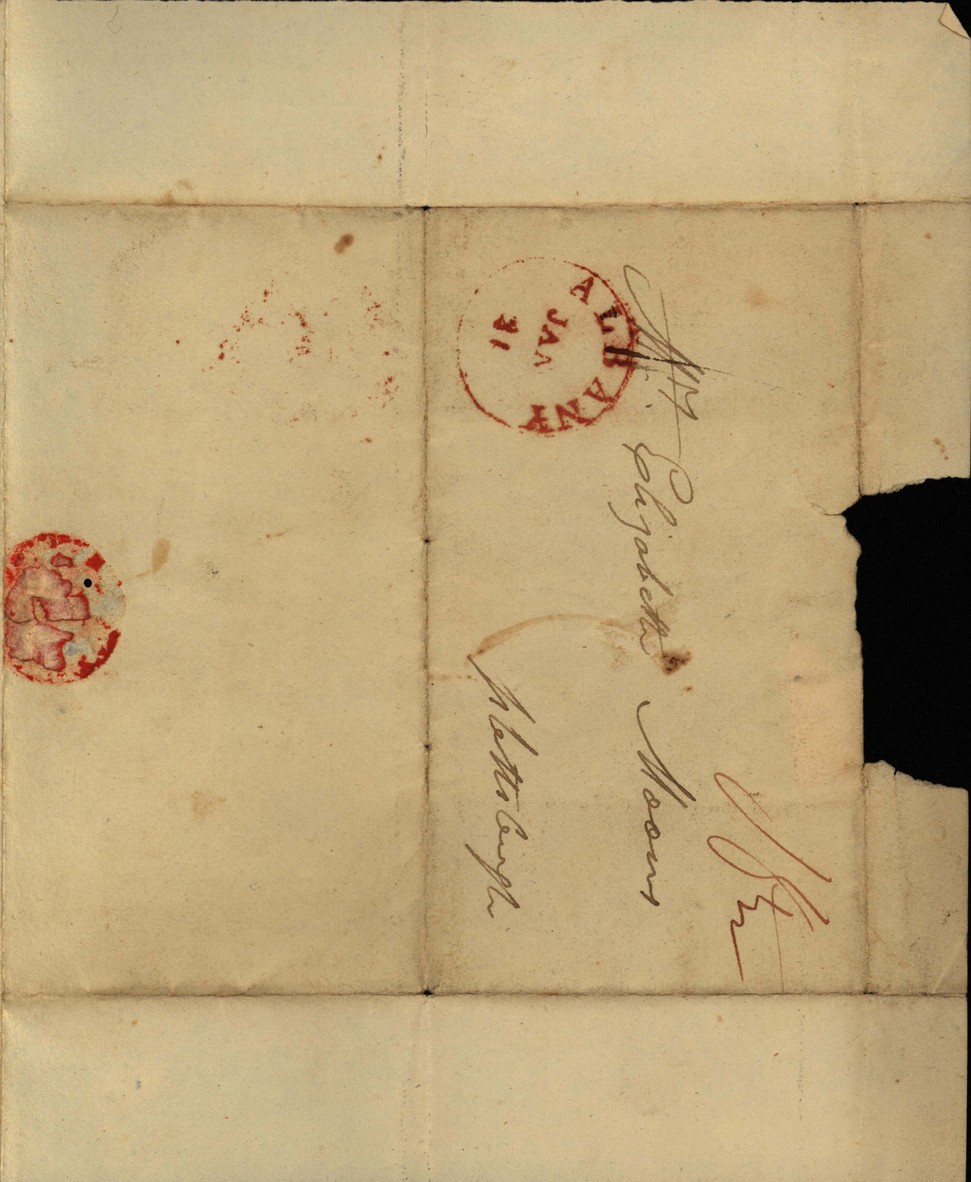 ALBANY
JAN
31
Mrs Elizabeth Moores
Plattsburgh